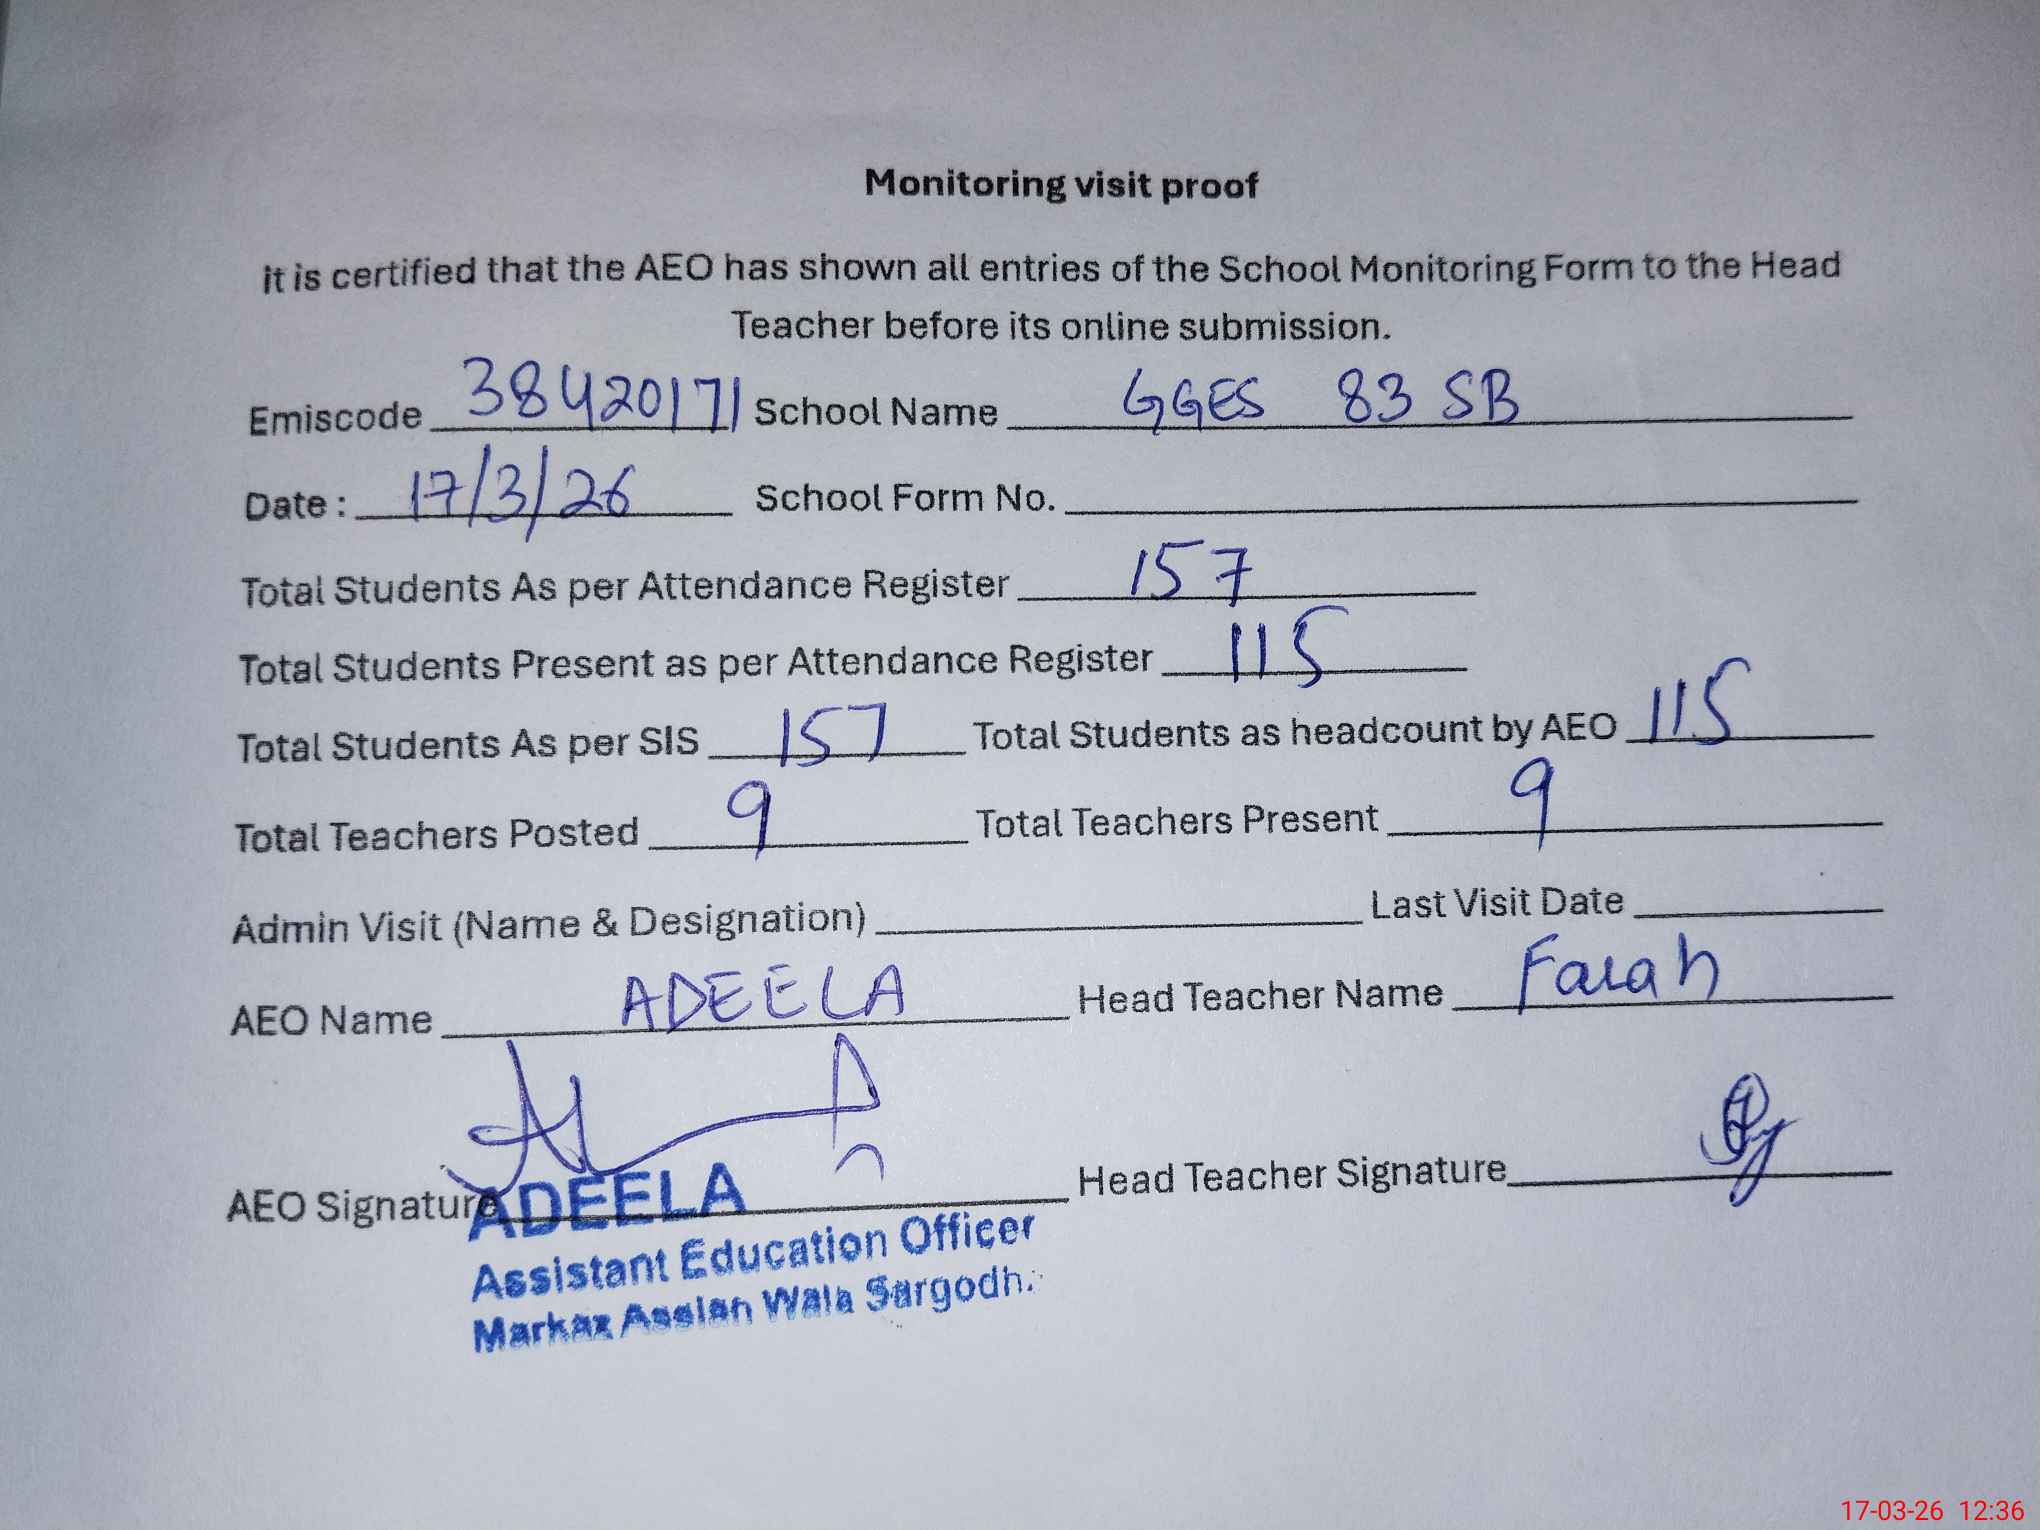 Monitoring visit proof
It is certified that the AEO has shown all entries of the School Monitoring Form to the Head
Teacher before its online submission.
Emiscode 38420171 School Name GGES 83 SB
Date : 17/3/26 School Form No.
Total Students As per Attendance Register 157
Total Students Present as per Attendance Register 115
Total Students As per SIS 157 Total Students as headcount by AEO 115
Total Teachers Posted 9 Total Teachers Present 9
Admin Visit (Name & Designation) Last Visit Date
AEO Name ADEELA Head Teacher Name Farah
AEO Signature Head Teacher Signature
ADEELA
Assistant Education Officer
Markaz Assian Wala Sargodh.
17-03-26 12:36